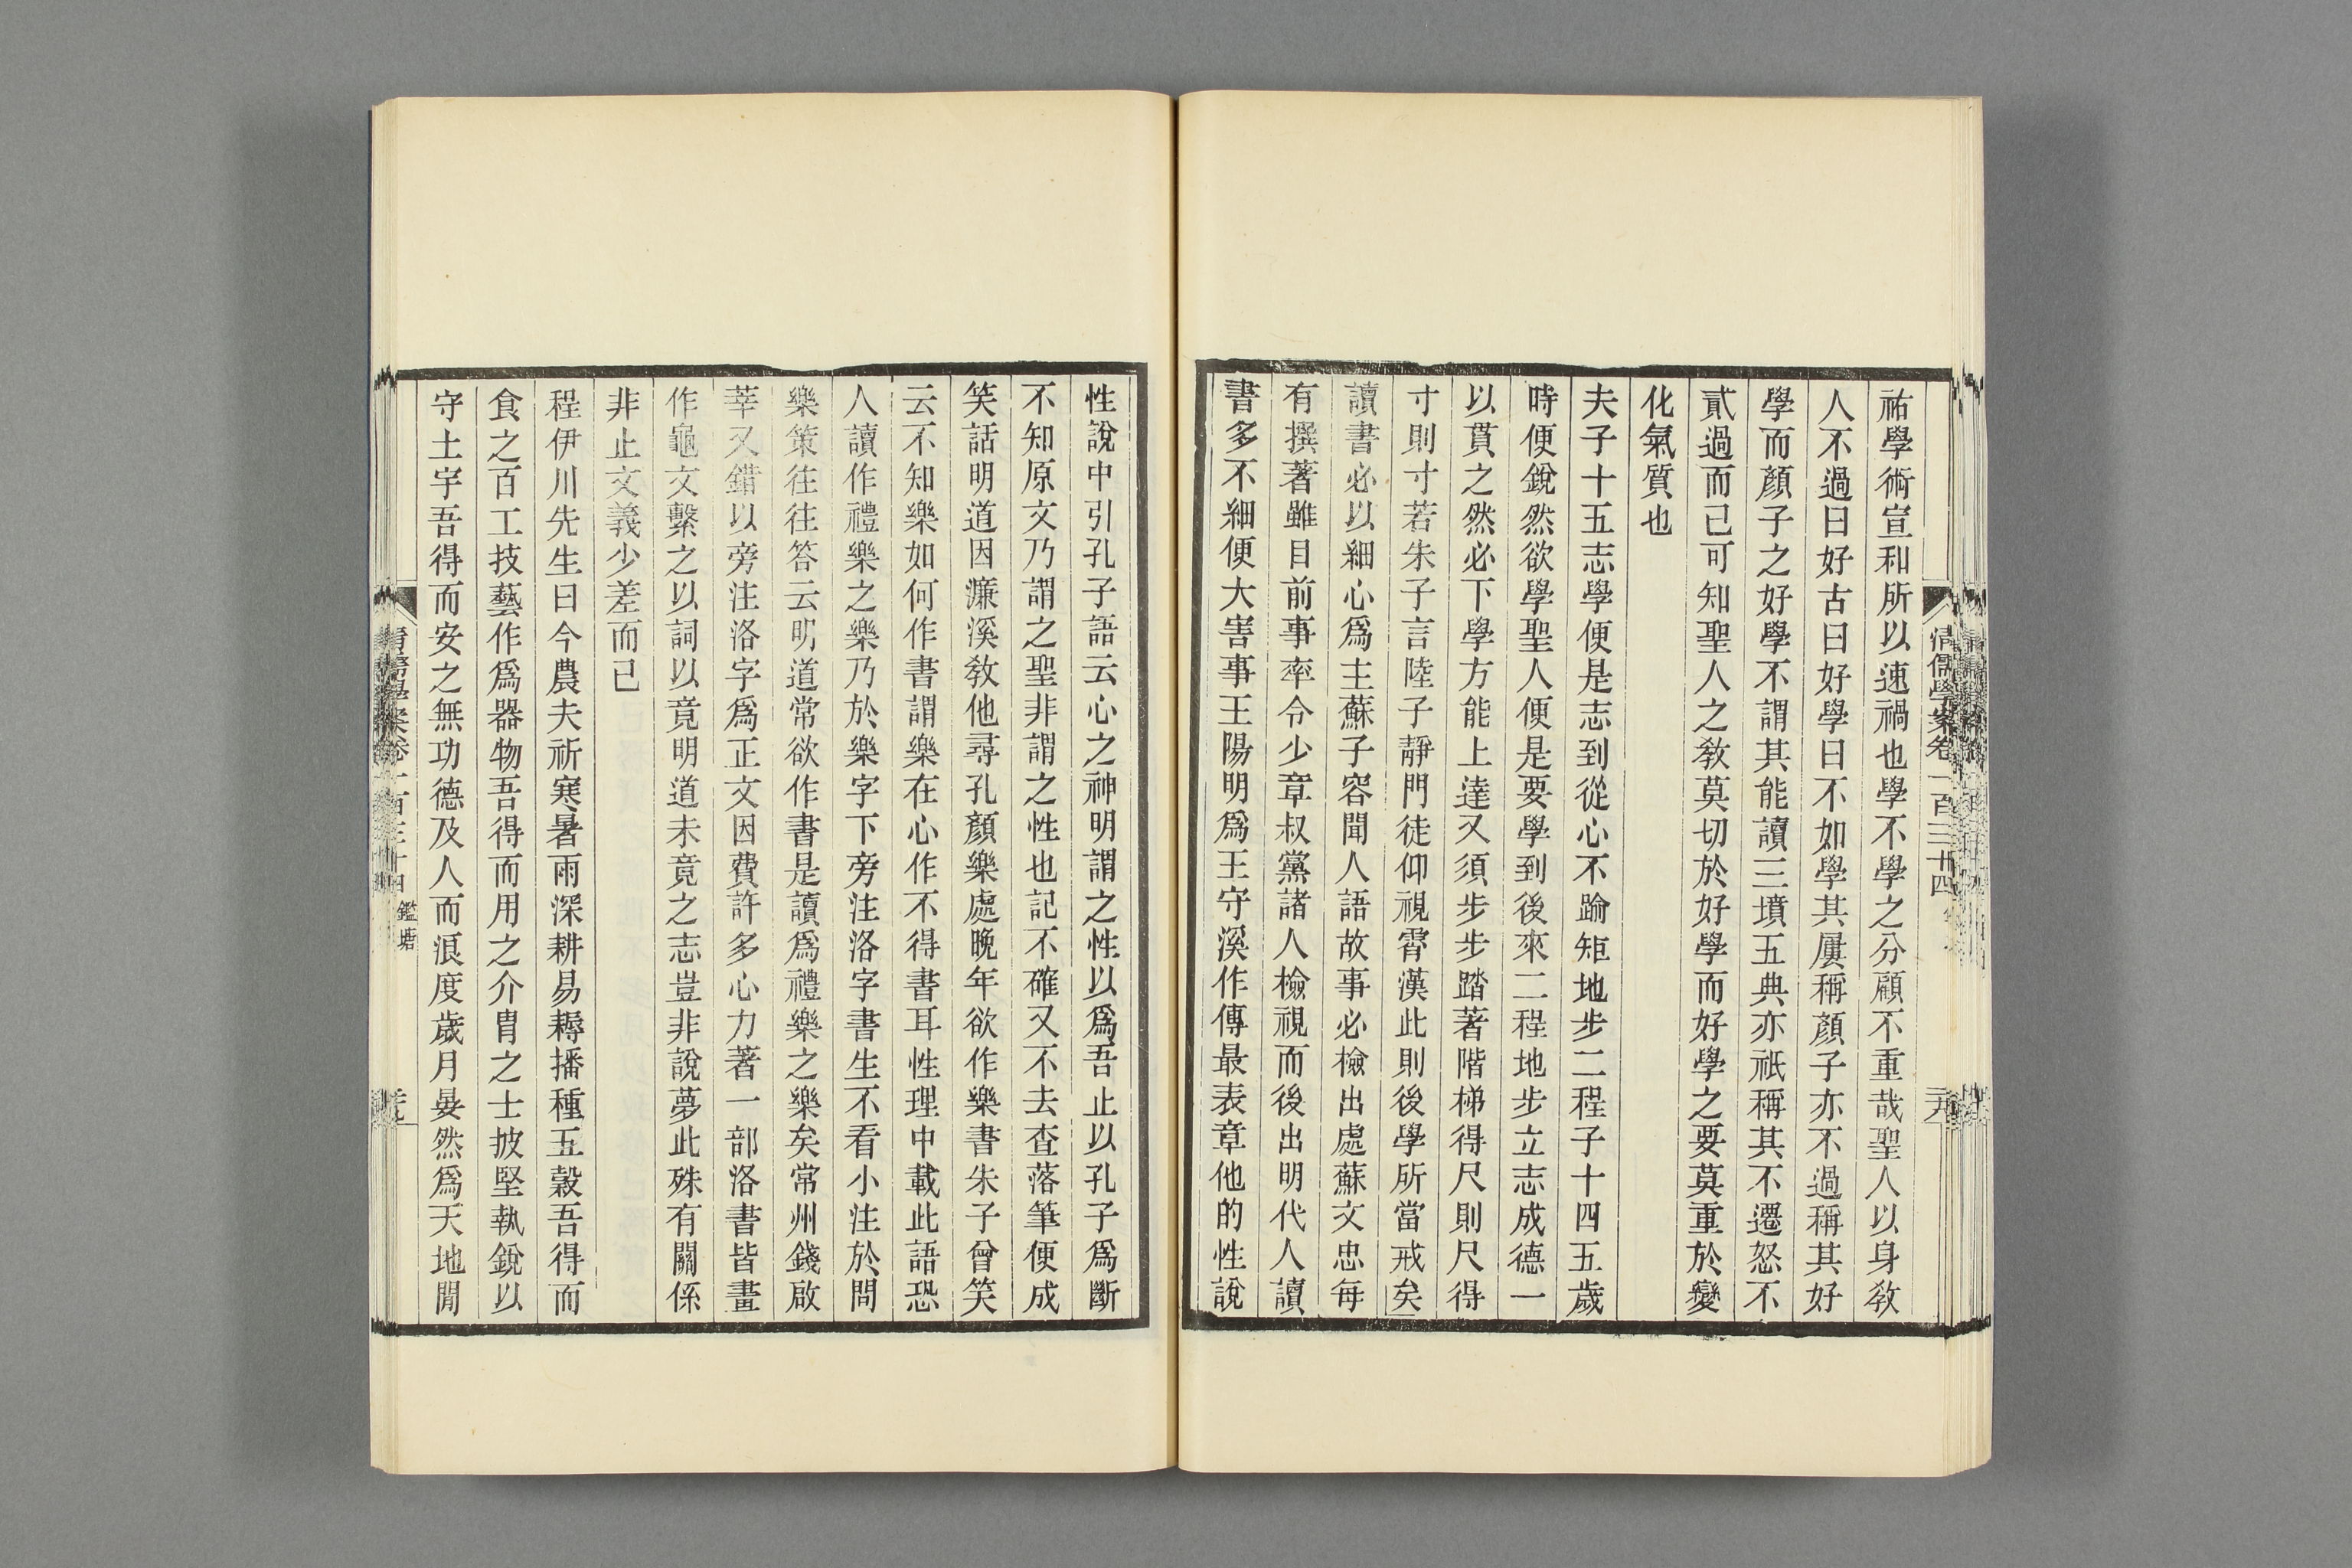 祐學術宣和所以速禍也學不學之分顧不重哉聖人以身敎
人不過曰好古曰好學曰不如學其屢稱顏子亦不過稱其好
學而顏子之好學不謂其能讀三墳五典亦祇稱其不遷怒不
貳過而已可知聖人之敎莫切於好學而好學之要莫重於變
化氣質也
夫子十五志學便是志到從心不踰矩地步二程子十四五歲
時便銳然欲學聖人便是要學到後來二程地步立志成德一
以貫之然必下學方能上達又須步步踏著階梯得尺則尺得
寸則寸若朱子言陸子靜門徒仰視霄漢此則後學所當戒矣
讀書必以細心爲主蘇子容聞人語故事必檢出處蘇文忠每
有撰著雖目前事率令少章叔黨諸人檢視而後出明代人讀
書多不細便大害事王陽明爲王守溪作傳最表章他的性說
性說中引孔子語云心之神明謂之性以爲吾止以孔子爲斷
不知原文乃謂之聖非謂之性也記不確又不去查落筆便成
笑話明道因濂溪敎他尋孔顏樂處晚年欲作樂書朱子曾笑
云不知樂如何作書謂樂在心作不得書耳性理中載此語恐
人讀作禮樂之樂乃於樂字下旁注洛字書生不看小注於問
樂策往往答云明道常欲作書是讀爲禮樂之樂矣常州錢啟
莘又錯以旁注洛字爲正文因費許多心力著一部洛書皆畫
作龜文繫之以詞以竟明道未竟之志豈非說夢此殊有關係
非止文義少差而已
程伊川先生曰今農夫祈寒暑雨深耕易耨播種五穀吾得而
食之百工技藝作爲器物吾得而用之介胄之士披堅執銳以
守土宇吾得而安之無功德及人而浪度歲月晏然爲天地閒
清儒學案卷一百三十四
三九
鑑塘